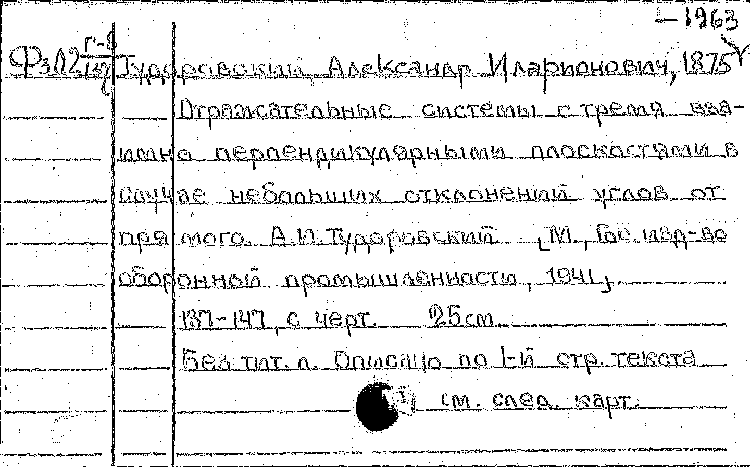 –1963
Тудоровский, Александр Иларионович, 1875
Отражательные системы с тремя вза-
имно перпендикулярными плоскостями в
случае небольших отклонений углов от
прямого. А.И. Тудоровский. [М., Гос. изд-во
оборонной промышленности, 1941].
137-147 с черт. 25 см.
Без тит. л. Описано по 1-й стр. текста
см. след. карт.